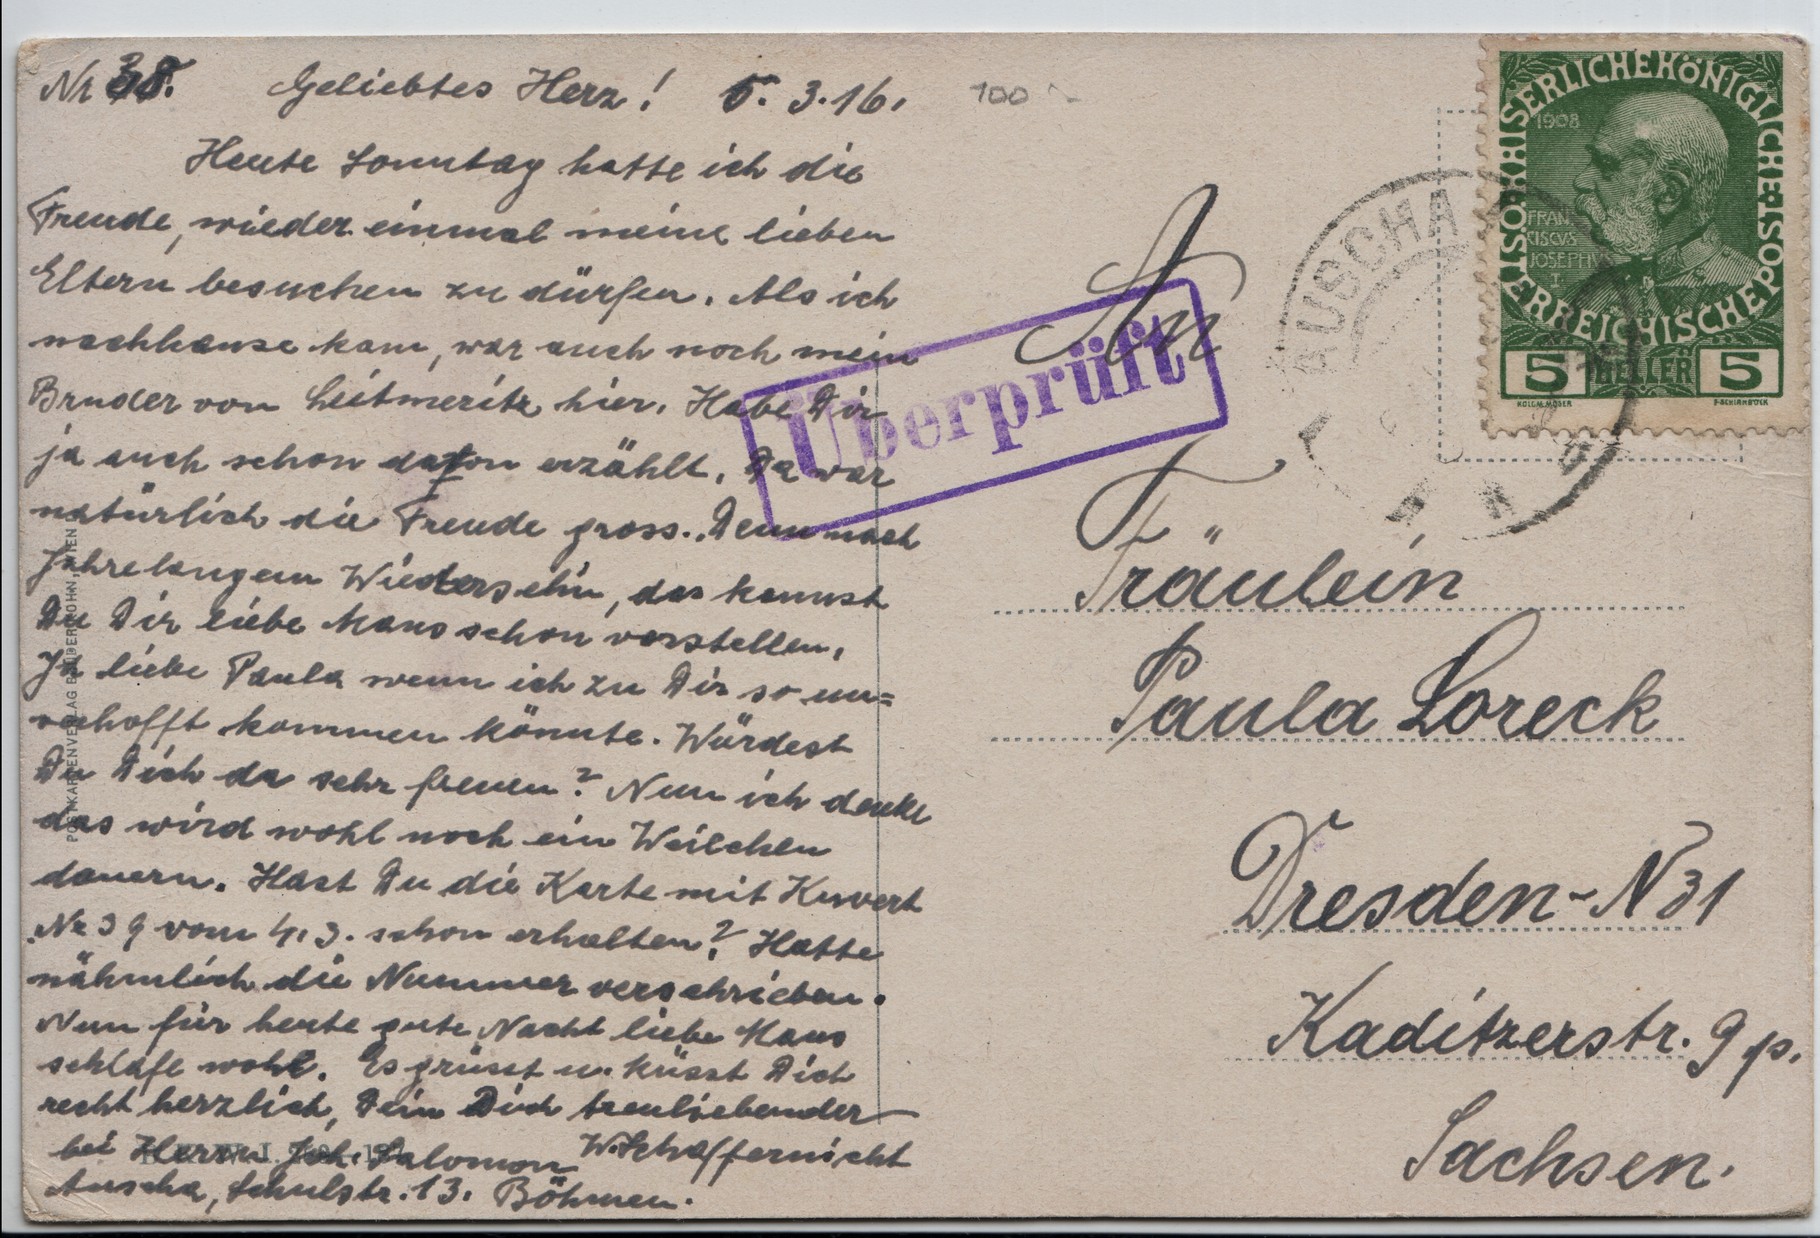 Nr 38. Geliebtes Herz! 5. 3. 16.
Heute Sonntag hatte ich die
Freude, wieder einmal meine lieben
Eltern besuchen zu dürfen. Als ich
nachhause kam, war auch noch mein
Bruder von Leitmeritz hier. Habe Dir
ja auch schon davon erzählt. Da war
natürlich die Freude gross. Denn nach
Jahrelangem Wiedersehn, das kannst
Du Dir liebe Maus schon vorstellen.
Ja liebe Paula wenn ich zu Dir so un=
verhofft kommen könnte. Würdest
Du Dich da sehr freuen? Nun ich denke
das wird wohl noch ein Weilchen
dauern. Hast Du die Karte mit Kuvert
Nr 39 vom 4.3. schon erhalten? Hatte
nähmlich die Nummer verschrieben.
Nun für heute gute Nacht liebe Maus
schlafe wohl. Es grüsst u. küsst Dich
recht herzlich, Dein Dich treuliebender
W. Schaffernicht
bei Herrn Joh. Salomon
Auscha, Schulstr. 13. Böhmen.
POSTKARTENVERLAG BRÜDER KOHN, WIEN
100
Überprüft
AUSCHA
KAISERLICHE KÖNIGLICHE ÖSTERREICHISCHE POST
1908
FRAN
CISCVS
JOSEPHVS
I
5 HELLER 5
KOL. MOSER F. SCHIRNBÖCK
An
Fräulein
Paula Loreck
Dresden-N 31
Kaditzerstr. 9 p.
Sachsen.